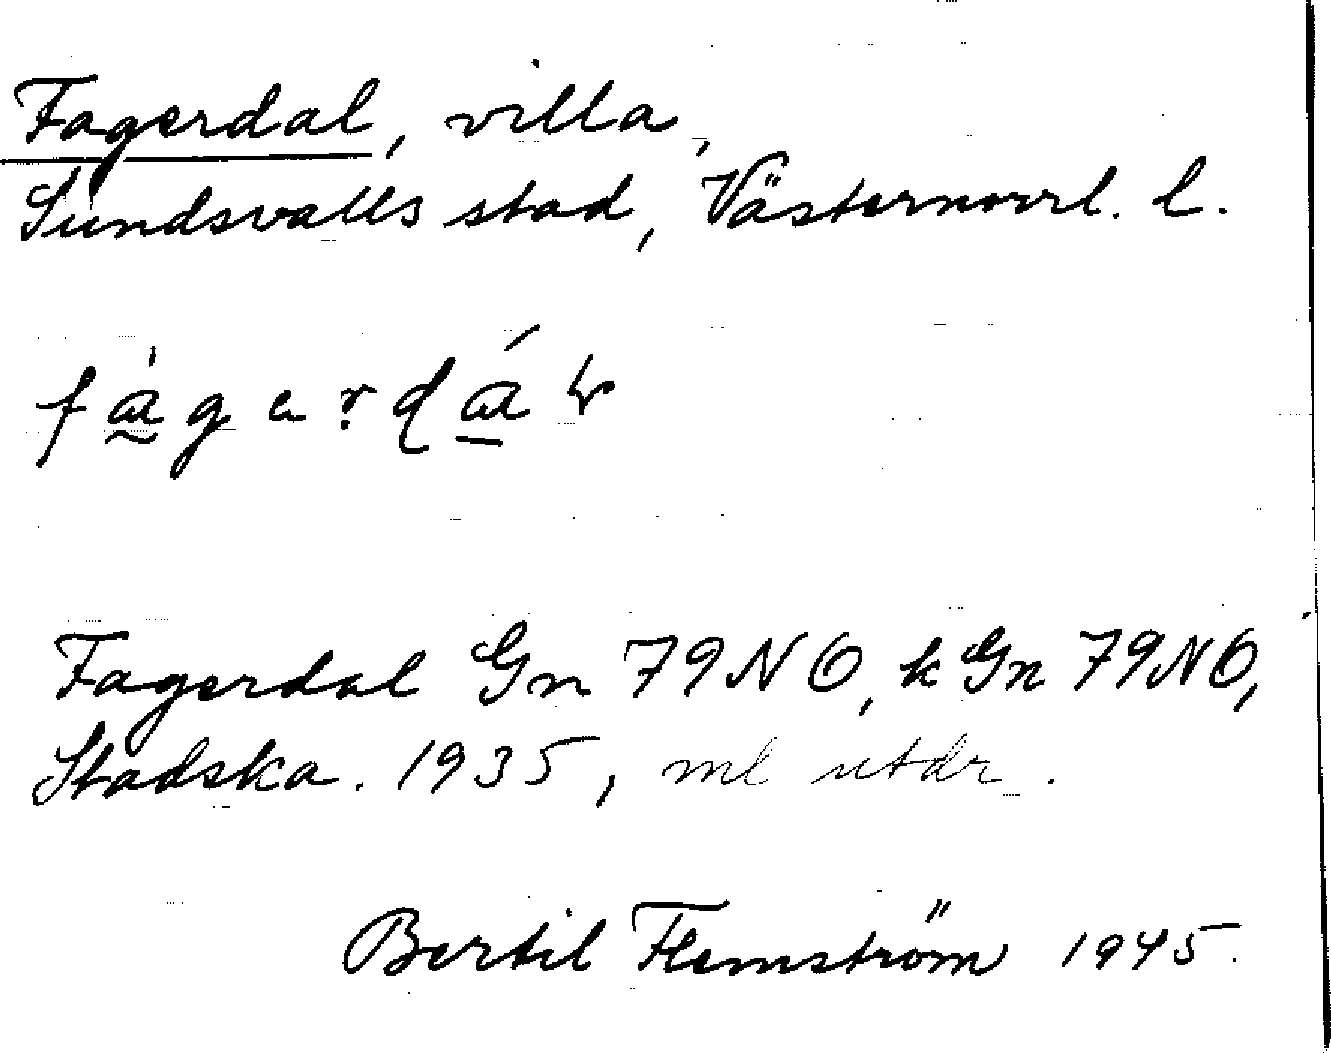 Fagerdal, villa,
Sundsvalls stad, Västernorrl. l.
Fagerdal Gn 79NO, k Gn 79NO,
Stadska. 1935, ml utdr.
Bertil Flemström 1945.